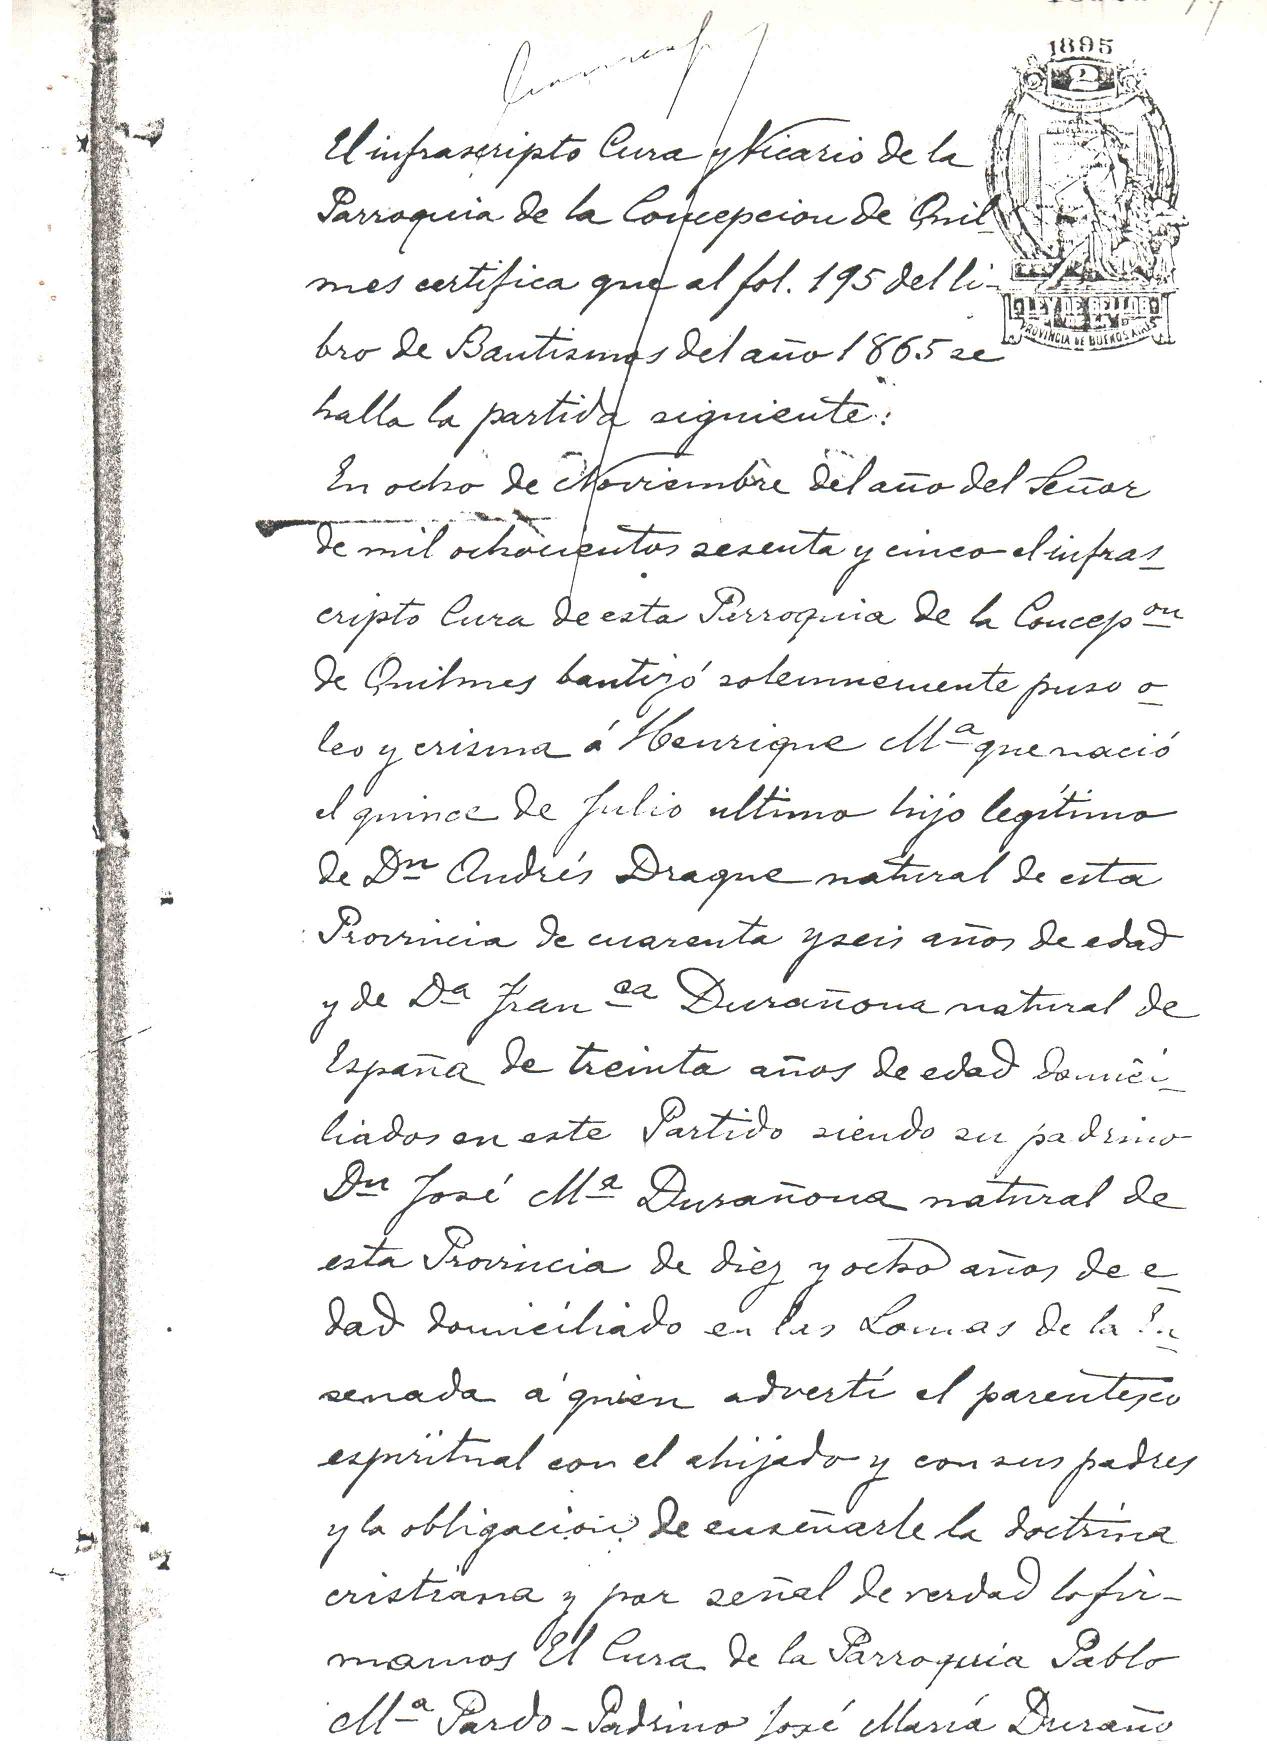 1895
2
El infrascripto Cura y Vicario de la
Parroquia de la Concepcion de Quil-
mes certifica que al fol. 195 del li-
LEY DE SELLOS
PROVINCIA DE BUENOS AIRES
bro de Bautismos del año 1865 se
halla la partida siguiente:
En ocho de Noviembre del año del Señor
de mil ochocientos sesenta y cinco el infras_
cripto Cura de esta Parroquia de la Concepon
de Quilmes bautizó solemnemente puso o_
leo y crisma á Henrique Ma que nació
el quince de Julio ultimo hijo legítimo
de Dn Andrés Draque natural de esta
Provincia de cuarenta y seis años de edad
y de Da Franca Durañona natural de
España de treinta años de edad domici_
liados en este Partido siendo su padrino
Dn José Ma Durañona natural de
esta Provincia de diez y ocho años de e_
dad domiciliado en las Lomas de la En_
senada á quien advertí el parentesco
espiritual con el ahijado y con sus padres
y la obligacion de enseñarle la doctrina
cristiana y por señal de verdad lo fir-
mamos El Cura de la Parroquia Pablo
Ma Pardo - Padrino José María Duraño